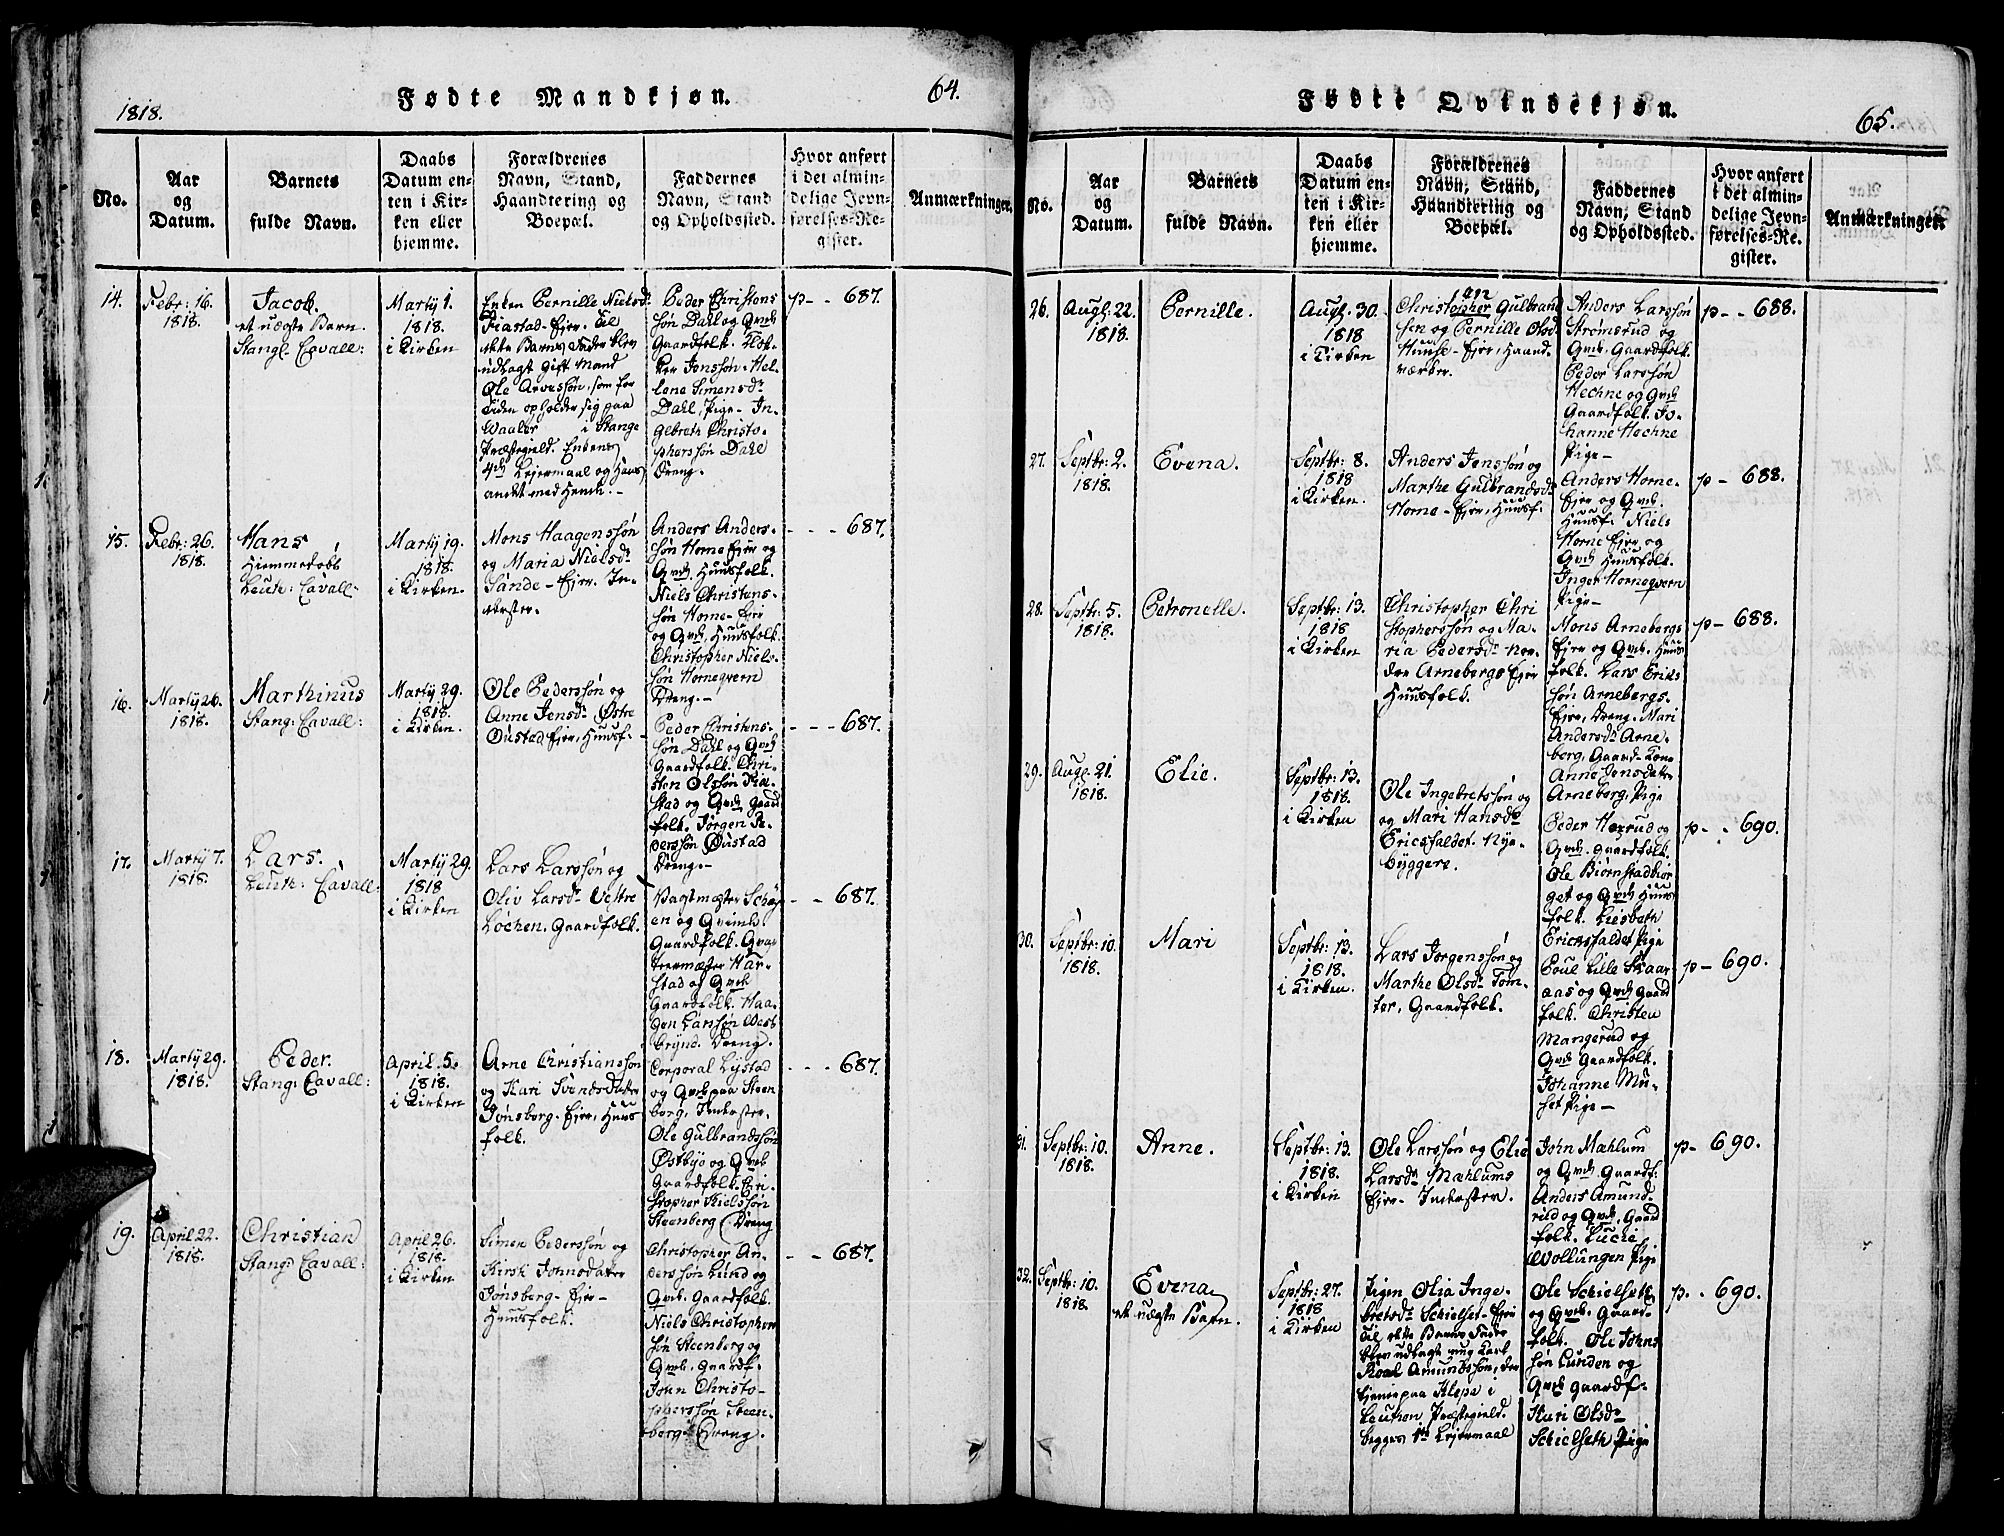 1818.
Fødte Mandkjøn.
64.
No.
Aar
og
Datum.
Barnets
fulde Navn.
Daabs
Datum en-
ten i Kir-
ken eller
hjemme.
Forældrenes
Navn, Stand,
Haandtering og
Boepæl.
Faddernes
Navn, Stand
og Opholdssted.
Hvor anført
i det almin-
delige Jevn-
førelses-Re-
gister.
Anmærkninger.
14.
Febr: 16.
1818.
Jacob.
et uægte Barn.
Stang: Cavall:
Martij 1.
1818.
i Kirken
Enken Pernille Nielsdr
Fiastad-Ejer. Til
dette Barns Fader blev
udlagt gift Mand
Ole Arnessøn, som for
Tiden opholder sig paa
i Stange
Præstegield. Enkens
4de Lejermaal og Hans
andet med Hende.-
Peder Christens
søn Dahl og Qvde
Gaardfolk.
Jonssøn. Hel-
lene Simensdr
Dahl, Pige. In-
gebreth Christo-
phersøn Dahl
Dreng.-
p- - 687.
15.
Febr: 26.
1818.
Hans
Hiemmedøbt
Leuth: Cavall:
Martij 19.
1818.
i Kirken.
Mons Haagenssøn
og Maria Nielsdr
Sande-Ejer. In-
derster.
Anders Anders-
søn Horne Ejer og
Qvde Huusfolk.
Niels Christens-
søn Horne-Ejer
og Qvde, Huusfolk.
Christopher Niels-
søn Horneqvern
Dreng.-
- - - 687.
16.
Martij 26.
1818.
Marthinus
Stang: Cavall:
Martij 29.
1818.
i Kirken.
Ole Pederssøn og
Anne Jensdr Østre
Oustad Ejer, Huusf-
Peder Christens-
søn Dahl og Qvde
Gaardfolk. Chri-
sten Olssøn Fia-
stad og Qvde Gaard
folk. Jørgen Pe-
derssøn Oustad
Dreng.-
- - - 687.
17.
Martij 7.
1818.
Lars.
Leuth: Cavall:
Martij 29.
1818
i Kirken
Lars Larssøn og
Oliv Larsdr Vestre
Løchen. Gaardfolk.
Vagtmester Schøy
en og Qvinde
Gaardfolk. Qvar
teermester Har-
stad og Qvde
Gaardfolk. Haa-
gen Larssøn West
brynd. Dreng.
- - 687.
18.
Martij 29.
1818.
Peder.
Stang: Cavall:
April. 5.
1818.
i Kirken
Arne Christianssøn
og Kari Svendsdatter
Jønsberg-Ejer, Huus
folk.
Corporal Lijstad
og Qvde paa Steen
berg, Inderster.
Ole Gulbrandssøn
Østbye og Qvde
Gaardfolk. Chri-
stopher Nielssøn
Steenberg Dreng
- - - 687.
19.
April 22.
1818.
Christian
Stang: Cavall:
April 26.
1818.
i Kirken
Simen Pederssøn og
Kirsti Johnsdatter
Jønsberg-Ejer-
Huusfolk.
Christopher An-
derssøn Lund og
Qvde. Gaardfolk.
Niels Christopher
søn Steenberg og
Qvde. Gaardf.
John Christo-
pherssøn Steen-
berg Dreng.
- - 687.
Fødte Qvindekjøn.
65.
No.
Aar
og
Datum.
Barnets
fulde Navn.
Daabs
Datum en-
ten i Kir-
ken eller
hjemme.
Forældrenes
Navn, Stand,
Haandtering og
Boepæl.
Faddernes
Navn, Stand
og Opholdssted.
Hvor anført
i det almin-
delige Jevn-
førelses-Re-
gister.
Anmærkninger.
26.
Augl. 22.
1818.
Pernille.
Augl. 30.
1818
i Kirken
Christopher Gulbrand
sen og Pernille Olsdr
Huuse-Ejer, Haand-
værker.
Anders Larssøn
Strømsrud og
Qvde. Gaardfolk.
Peder Larssøn
Hechne og Qvde
Gaardfolk. Jo-
hanne Hechne
Pige-
p- - 688.
27.
Septbr: 2.
1818.
Evena.
Septbr: 8.
1818
i Kirken.
Anders Jenssøn og
Marthe Gulbrandsdr
Horne-Ejer, Huusf.
Anders Horne-
Ejer og Qvde.
Huusf. Niels
Horne Ejer og
Qvde Huusfolk.
Inger Horneqvern
Pige-
p- 688.
28.
Septbr: 5.
1818.
Petronelle.
Septbr: 13.
1818
i Kirken
Christopher Chri
stopherssøn og Ma-
ria Pedersdr Nor-
dre Arnebergs Ejer
Huusfolk.
Mons Arnebergs
Ejer og Qvde. Huus
folk. Lars Erics
søn Arnebergs-
Ejer, Dreng. Mari
Andersdr Arne-
berg, Gaard-Kone
Anne Jensdatr
Arneberg, Pige
p- 688.
29.
Augl. 21.
1818.
Elie.
Septbr: 13.
1818.
i Kirken
Ole Ingebretssøn og
og Mari Hansdr
Ericsfaldet. Nye-
byggere.
Peder Hexrud og
Qvde. Gaardfolk.
Ole Biørnstadbor
get og Qvde Huus
folk. Liesbeth
Ericksfaldet Pige
p- . 690.
30.
Septbr: 10.
1818.
Mari
Septbr: 13.
1818.
i Kirken.
Lars Jørgenssøn og
Marthe Olsdr Tom-
ter, Gaardfolk.
Poul Lille Skaar
aas og Qvde Gaard
folk. Christen
Mangerud og
Qvde Gaardfolk.
Johanne Mu-
set Pige-
p- 690.
31.
Septbr: 10.
1818.
Anne.
Septbr: 13.
1818.
i Kirken
Ole Larssøn og Elie
Larsdr Mæhlums
Ejer-Inderster.
John Mæhlum
og Qvde Gaardf:
Anders Amund-
rud og Qvde. Gaard
folk. Lucie
Wollungen Pige
p- 690.
32.
Septbr: 10.
1818.
Evena
et uægte Barn.
Septbr: 27.
1818
i Kirken
Pigen Olia Inge-
bretsdr Schielset-Ejer
Til dette Barns Fader
blev udlagt ung Karl
Roal Amundssøn, der
tjener paa Klepa i
Leuthen Præstegield.
begges 1ste Lejermaal
Ole Schielseth
og Qvde. Gaard-
folk. Ole Johns
søn Lunden og
Qvde Gaardf-
Kari Olsdr
Schielseth Pige
p- . 690.